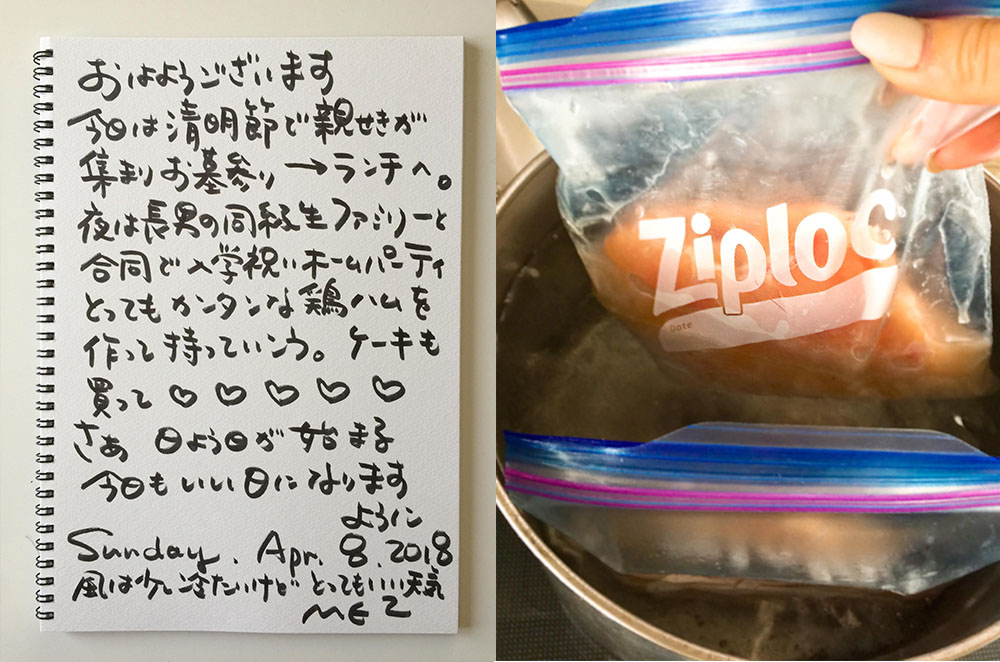 おはようございます
今日は清明節で親せきが
集まりお墓参り→ランチへ。
夜は長男の同級生ファミリーと
合同で入学祝いホームパーティ
とってもカンタンな鶏ハムを
作って持っていこう。ケーキも
買って♡♡♡♡♡
さぁ 日よう日が始まる
今日もいい日になります
ように
Sunday. Apr. 8. 2018
風は少し冷たいけど とってもいい天気
Ziploc
Date